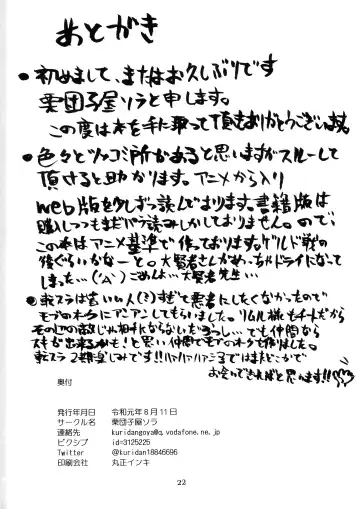 あとがき
● 初めまして、またはお久しぶりです
栗団子屋ソラと申します。
この度は本を手に取って頂きありがとうございます。
● 色々とツッコミ所があると思いますがスルーして
頂けると助かります。アニメから入り
web版を少しずつ読んでおります。書籍版は
購入しつつもまだパラ読みしかしておりません。ので、
この本はアニメ基準で作っております。ゲルド戦の
後ぐらいかなーと。大賢者さんがめっちゃドライになって
しまった…('A`)ごめんよ…大賢者先生…
● 転スラは言い人(?)すぎて悪者にしたくなかったので
モブのオークにアンアンしてもらいました。リムル様もチートだから
モブじゃ相手にならないだろうし…でも仲間なら
スキが出来るかも!と思い仲間でモブのオークも作りました。
転スラ2期楽しみです!!ハァハァハァン ではまたどこかで
お会いできればと思います!!
奥付
発行年月日 令和元年8月11日
サークル名 栗団子屋ソラ
連絡先 kuridangoya@q.vodafone.ne.jp
ピクシブ id=3125225
Twitter @kuridan18846696
印刷会社 丸正インキ
22